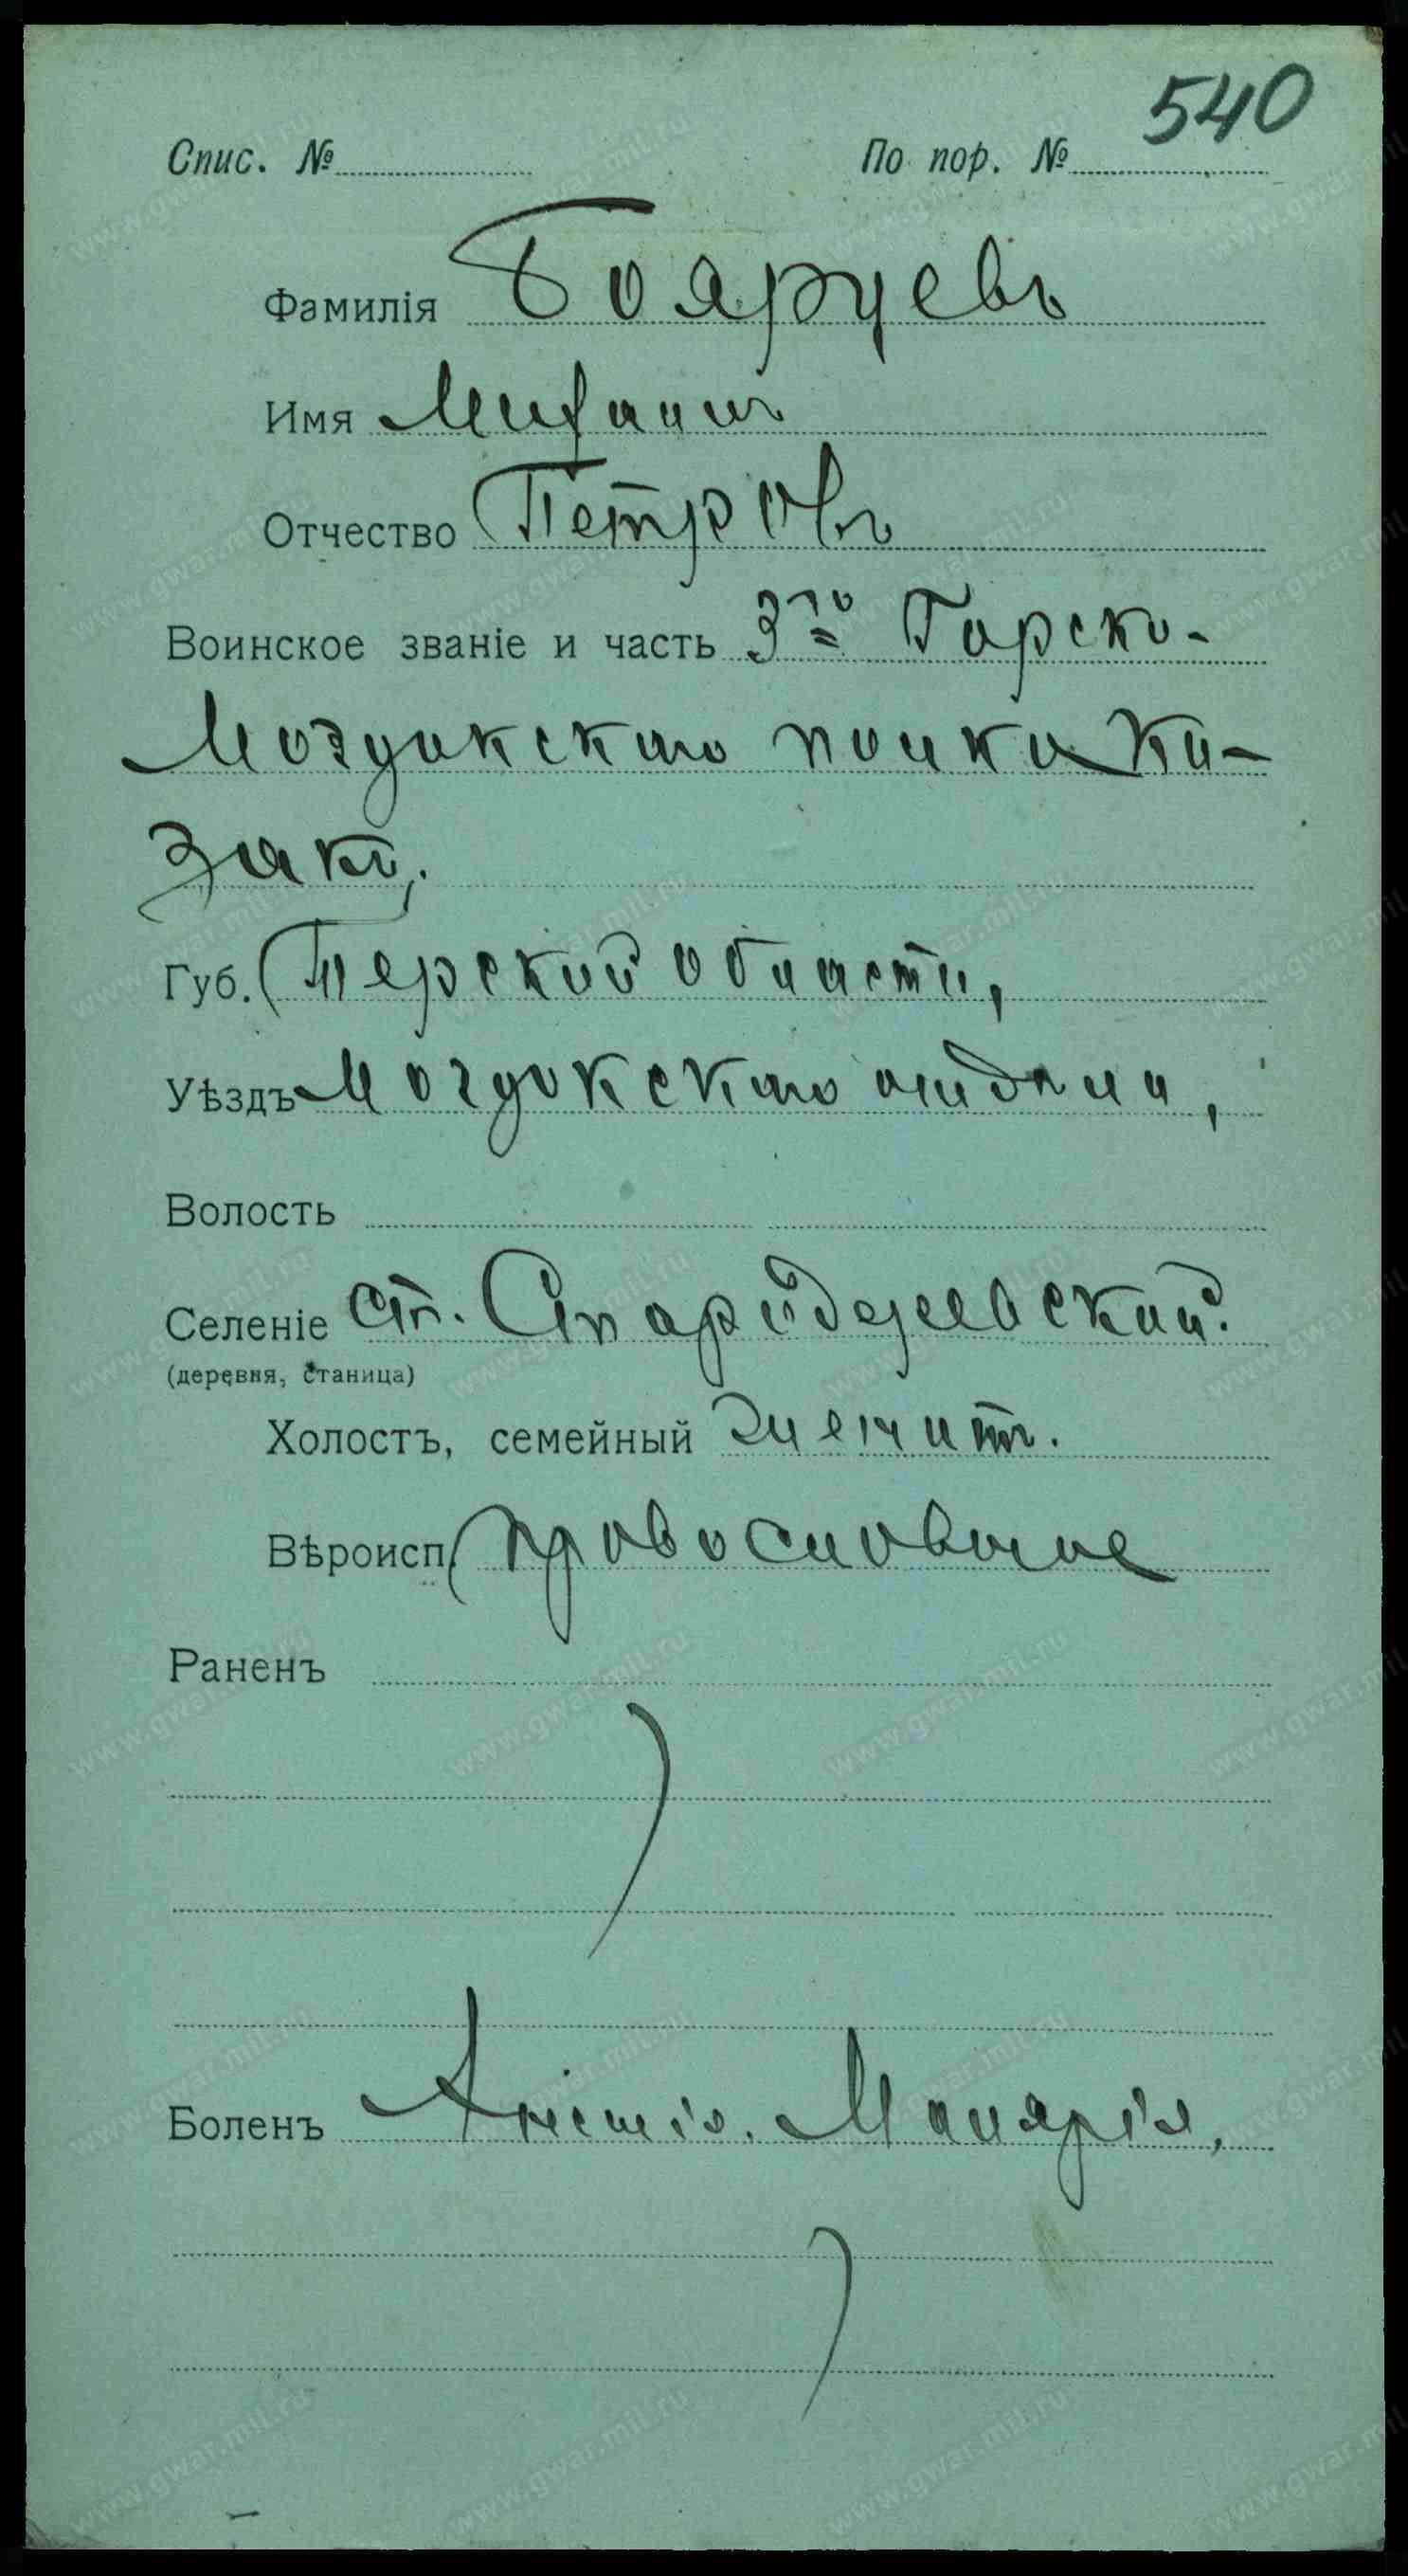 540
Спис. № По пор. №
Фамилія Бояруевъ
Имя Михаилъ
Отчество Петровъ
Воинское званіе и часть 3го Горско-
Моздокскаго полка Ка-
закъ,
Губ. Терской области,
Уѣздъ Моздокскаго отдѣла,
Волость
Селеніе ст.
(деревня, станица)
Холостъ, семейный женатъ.
Вѣроисп. православное
Раненъ
Боленъ Малярія,
www.gwar.mil.ru